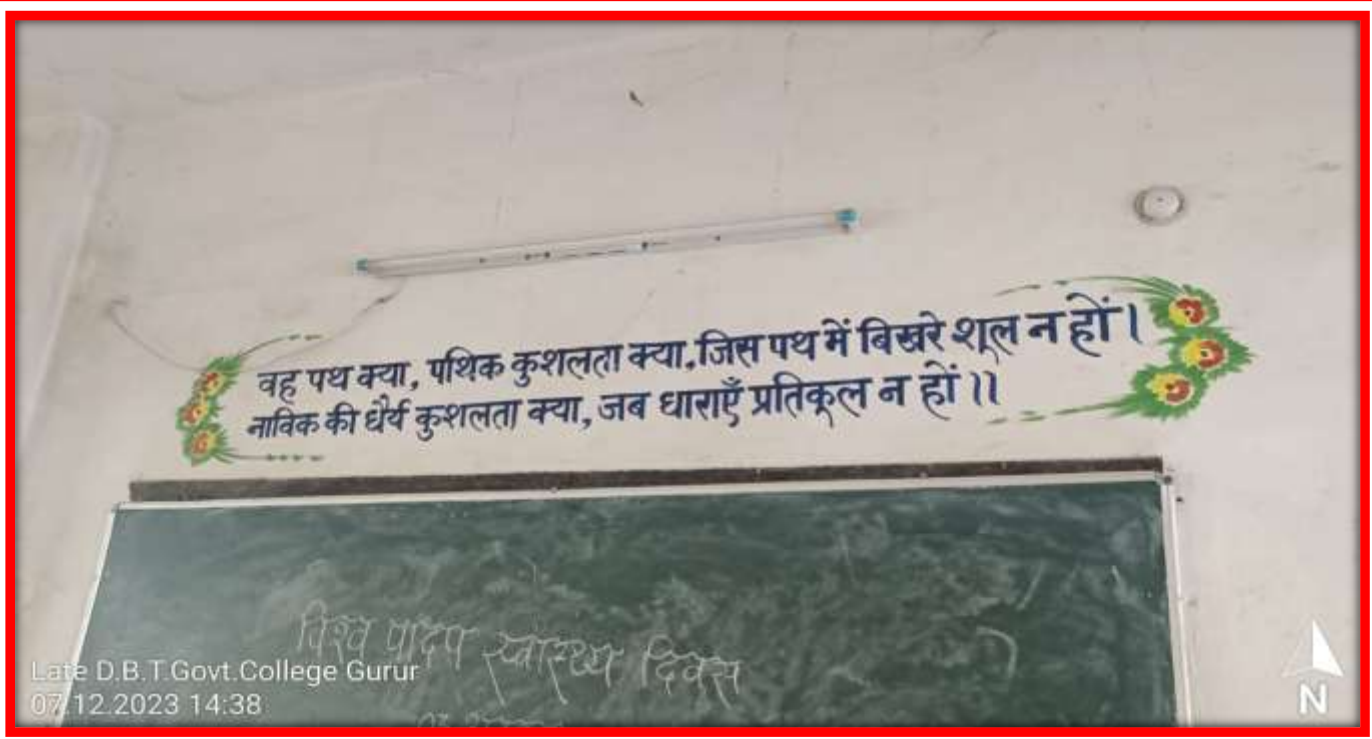 वह पथ क्या, पथिक कुशलता क्या, जिस पथ में बिखरे शूल न हों।
नाविक की धैर्य कुशलता क्या, जब धाराएँ प्रतिकूल न हों।।
विश्व पादप स्वास्थ्य दिवस
Late D.B.T.Govt.College Gurur
07.12.2023 14:38
N